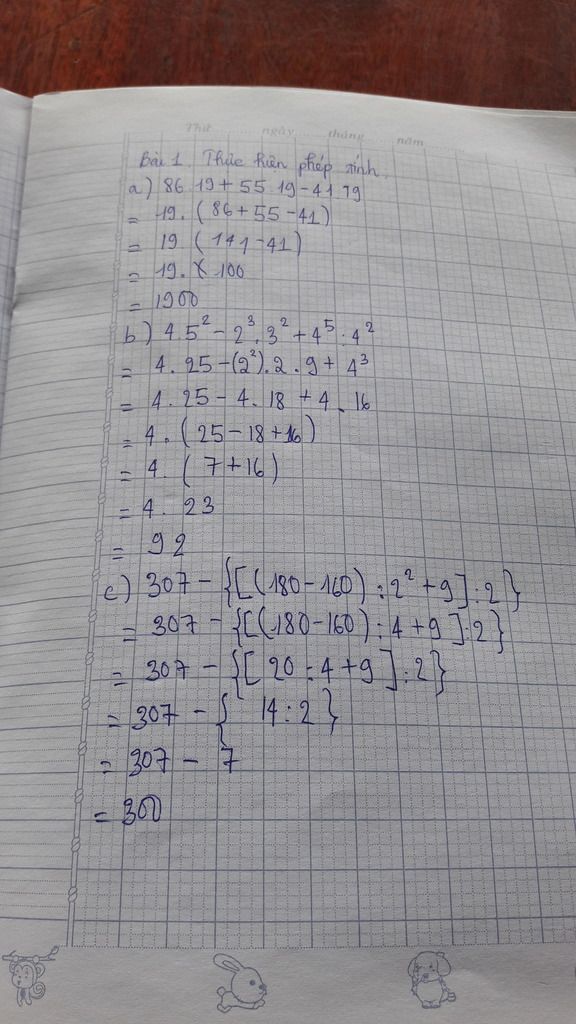 Thứ ngày tháng năm
Bài 1. Thực hiện phép tính
a) 86.19 + 55.19 - 41.19
= 19. (86 + 55 - 41)
= 19 (141 - 41)
= 19. x 100
= 1900
b) 4.5² - 2³.3² + 4⁵:4²
= 4.25 - (2²).2.9 + 4³
= 4.25 - 4.18 + 4.16
= 4.(25 - 18 + 16)
= 4.(7 + 16)
= 4.23
= 92
c) 307 - {[(180 - 160) : 2² + 9] : 2}
= 307 - {[(180 - 160) : 4 + 9] : 2}
= 307 - {[20 : 4 + 9] : 2}
= 307 - {14 : 2}
= 307 - 7
= 300